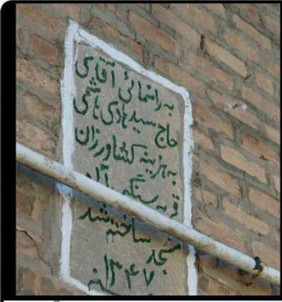 به راهنمائی آقای
حاج سید هادی هاشمی
به هزینه کشاورزان
قریه
ساخته شد
مسجد
۱۳۴۷